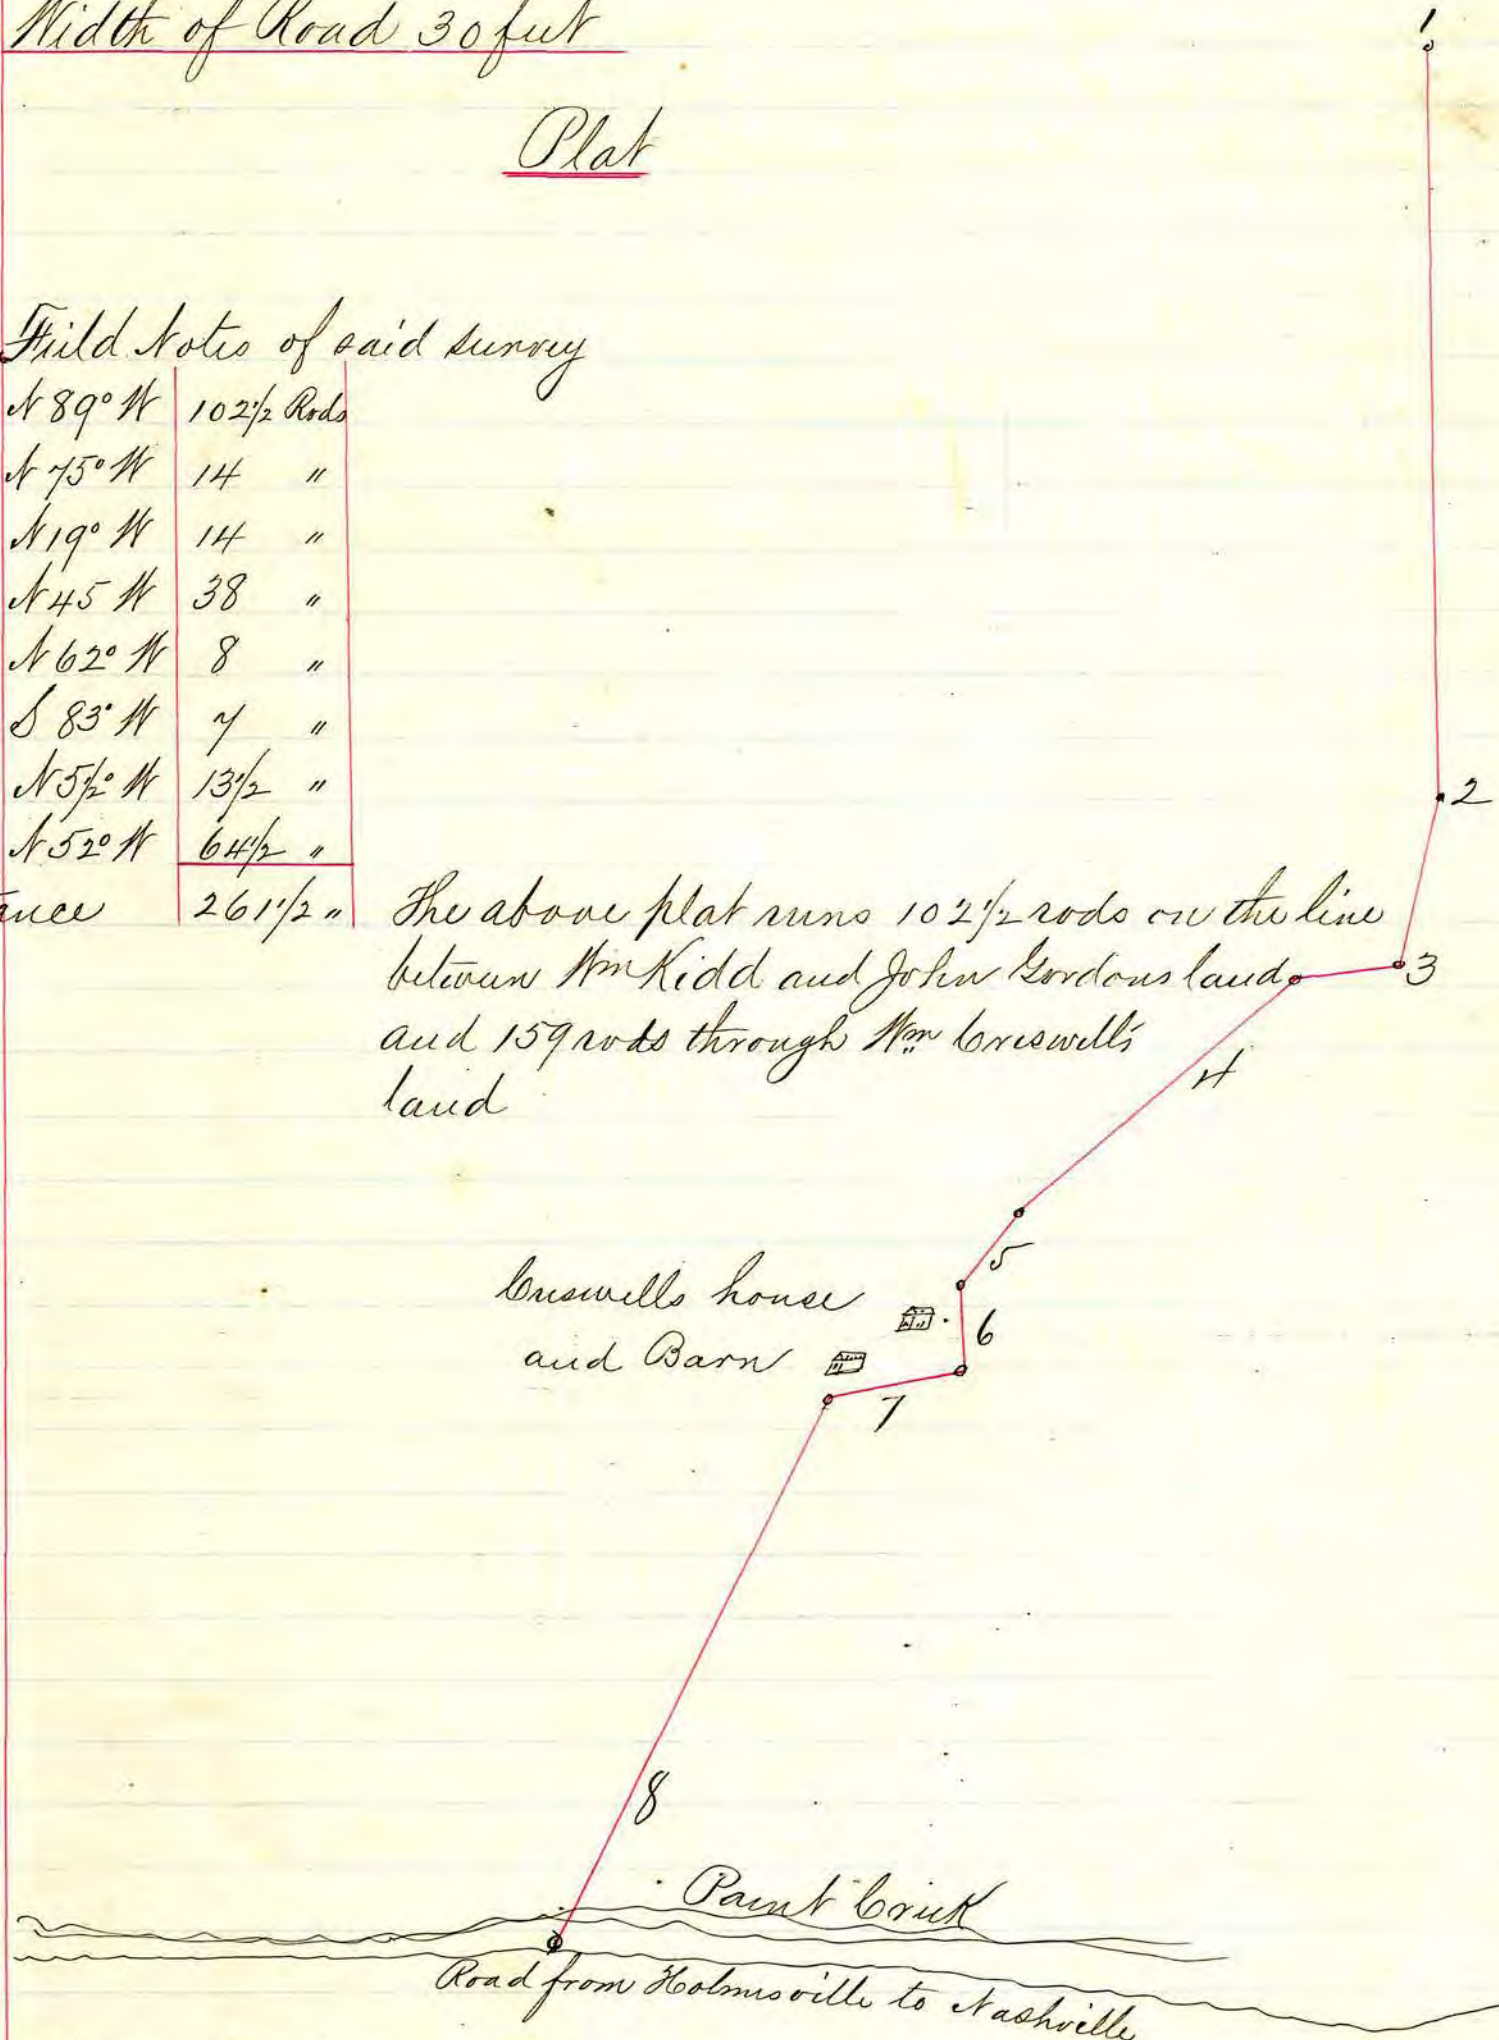 Width of Road 30 feet
Plat
Field Notes of said survey
N 89° W 102 1/2 Rods
N 75° W 14 "
N 19° W 14 "
N 45 W 38 "
N 62° W 8 "
S 83° W 7 "
N 5 1/2° W 13 1/2 "
N 52° W 64 1/2 "
ance 261 1/2 "
The above plat runs 102 1/2 rods on the line
between Wm Kidd and John Gordons land
and 159 rods through Wm Creswell's
land
1
2
3
4
5
Creswells house
6
and Barn
7
8
Paint Creek
Road from Holmesville to Nashville